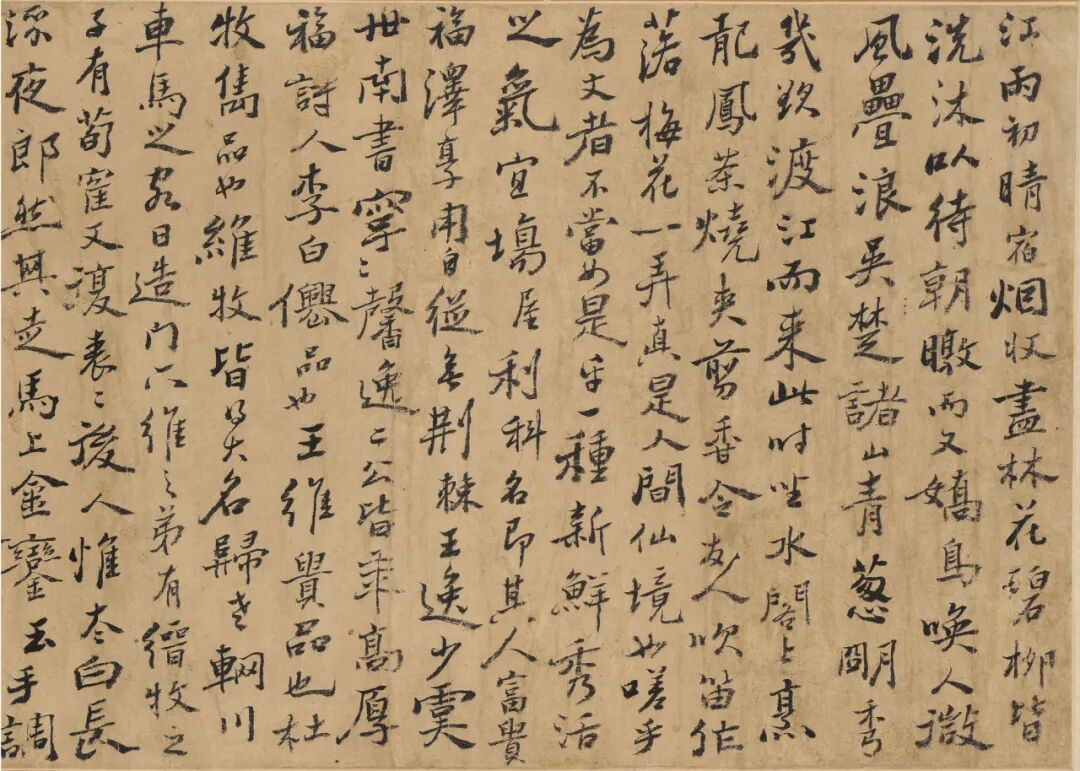 江雨初晴宿烟收盡林花碧柳皆
洗沐以待朝暾而又嬌鳥喚人微
風疊浪吳楚諸山青葱朙秀
幾欲渡江而来此时坐水閣上烹
龍鳳茶燒夾剪香令友人吹笛作
落梅花一弄真是人間仙境也嗟乎
為文者不當如是乎一種新鮮秀活
之氣宜塲屋利科名即其人富貴
福澤享用自從無荆棘王逸少虞
世南書字〻馨逸二公皆年高厚
福詩人李白僊品也王維貴品也杜
牧雋品也維牧皆得大名歸老輞川
車馬之客日造門下維之弟有縉牧之
子有荀寉又復表〻後人惟太白長
流夜郎然其走馬上金鑾玉手調